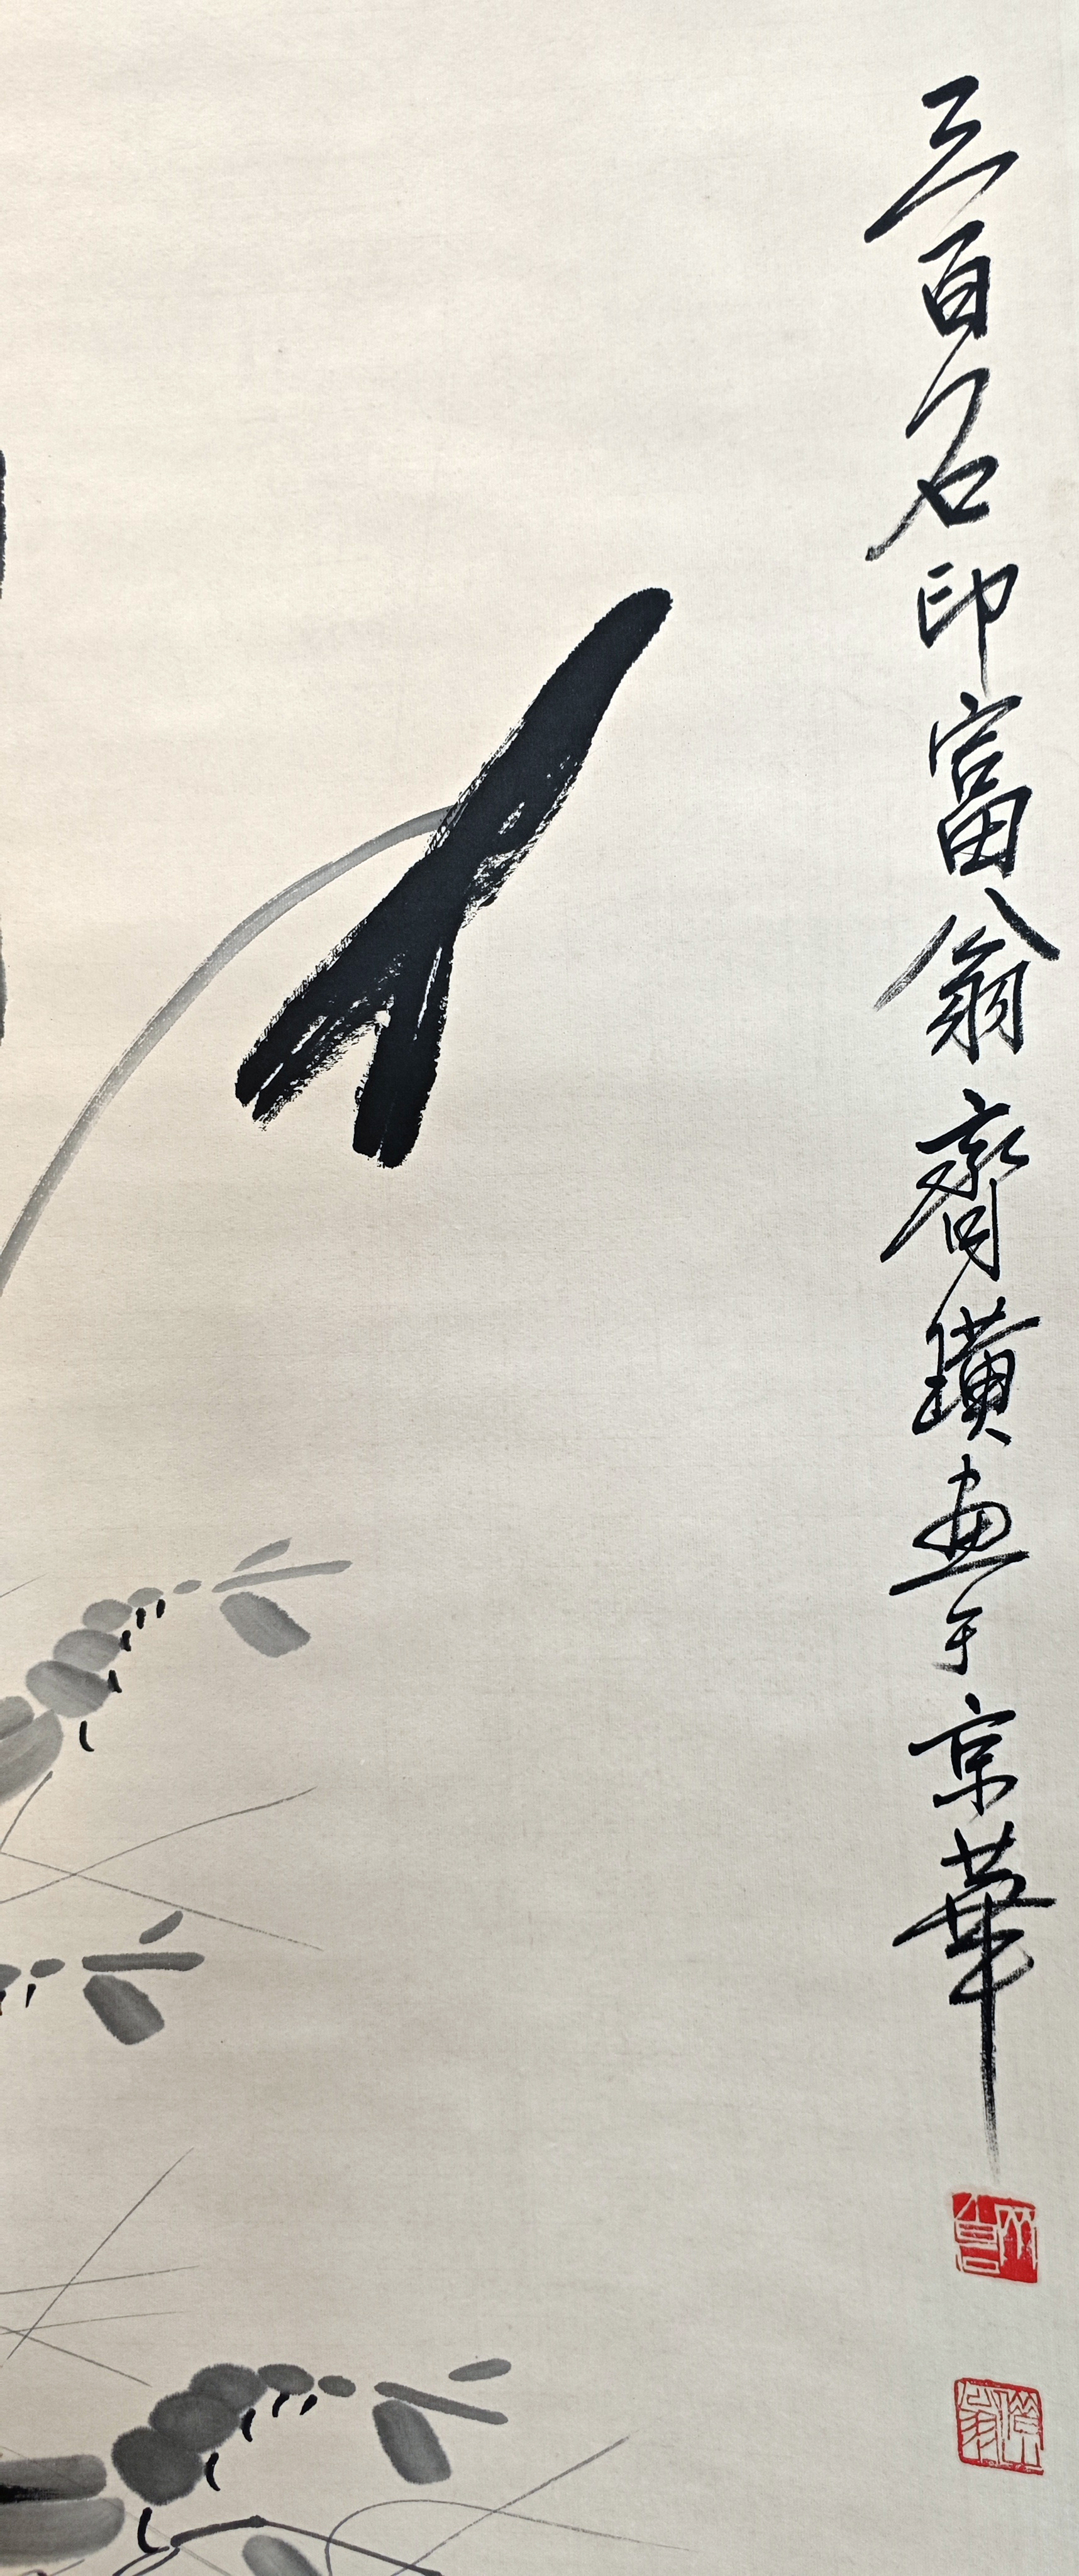 三百石印富翁齊璜画于京華